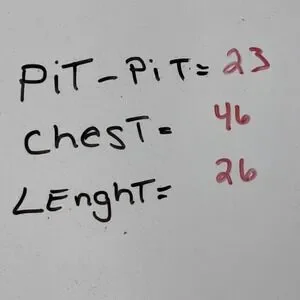 PiT-PiT= 23
chesT= 46
LEnghT= 26